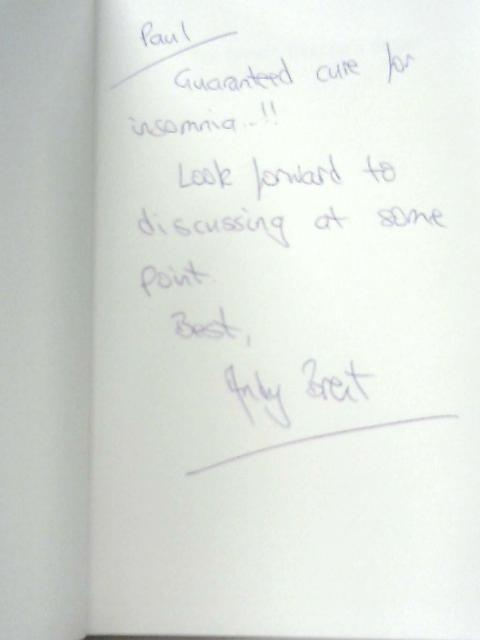 Paul
Guaranteed cure for
insomnia..!!
Look forward to
discussing at some
point.
Best,